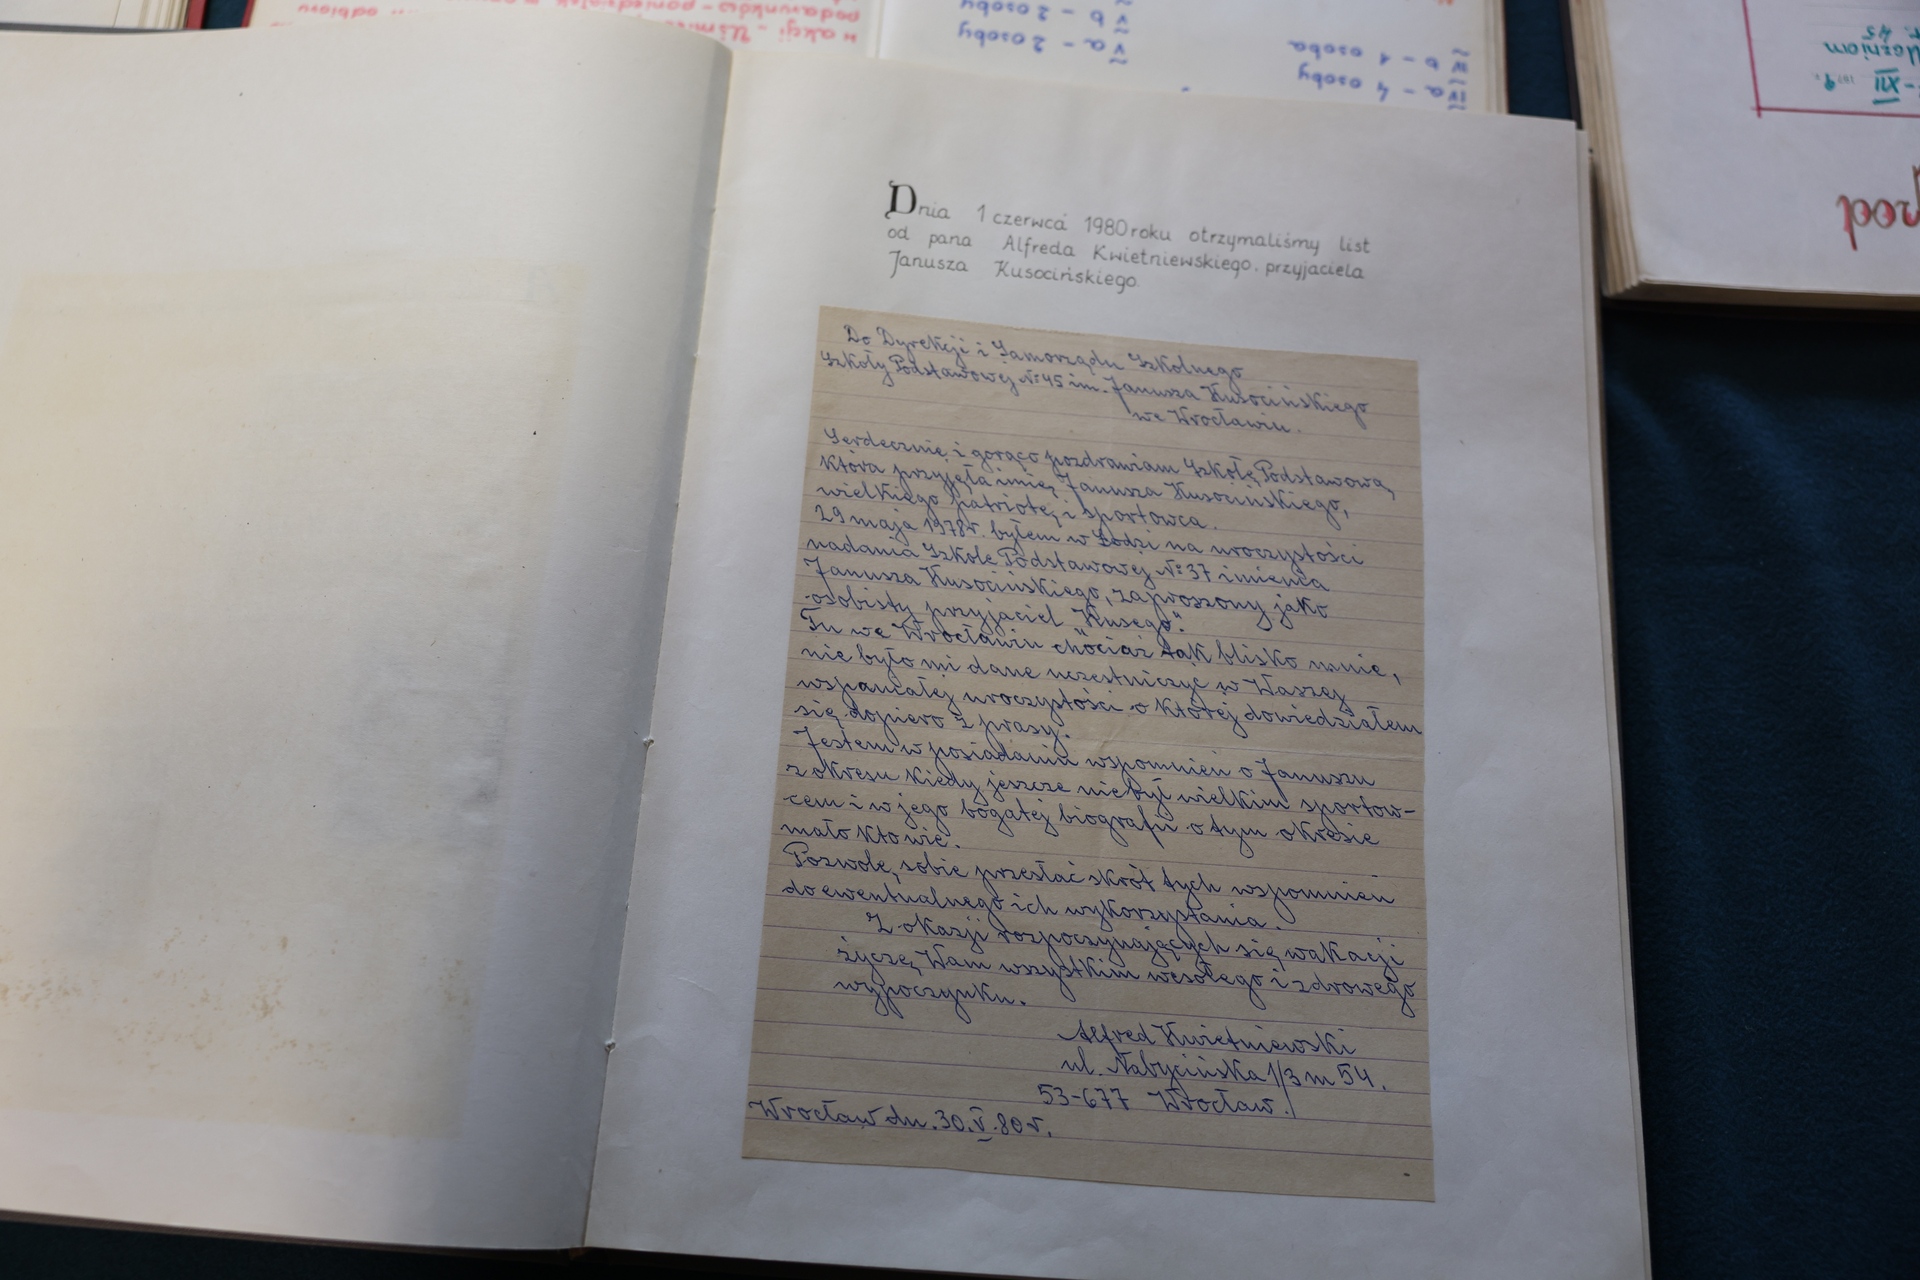 Dnia 1 czerwca 1980 roku otrzymaliśmy list
od pana Alfreda Kwietniewskiego, przyjaciela
Janusza Kusocińskiego.
Do Dyrekcji i Samorządu Szkolnego
Szkoły Podstawowej № 45 im. Janusza Kusocińskiego
we Wrocławiu.
Serdecznie i gorąco pozdrawiam Szkołę Podstawową,
która przyjęła imię Janusza Kusocińskiego,
wielkiego patriotę i sportowca.
29 maja 1978 r. byłem w Łodzi na uroczystości
nadania Szkole Podstawowej № 37 imienia
Janusza Kusocińskiego, zaproszony jako
osobisty przyjaciel "Kusego".
Tu we Wrocławiu chociaż tak blisko mnie,
nie było mi dane uczestniczyć w Waszej
wspaniałej uroczystości o której dowiedziałem
się dopiero z prasy.
Jestem w posiadaniu wspomnień o Januszu
z okresu kiedy jeszcze nie był wielkim sportow-
cem i w jego bogatej biografii o tym okresie
mało kto wie.
Pozwolę sobie przesłać skrót tych wspomnień
do ewentualnego ich wykorzystania.
Z okazji rozpoczynających się wakacji
życzę Wam wszystkim wesołego i zdrowego
wypoczynku.
Alfred Kwietniewski
ul. Nabycińska 1/3 m 54.
53-677 Wrocław.
Wrocław dn. 30.V.80 r.
IV a - 4 osoby
IV b - 1 osoba
V a - 2 osoby
V b - 2 osoby
w akcji
podarunków - poniedziałek
odbioru
XII
uczniom
45